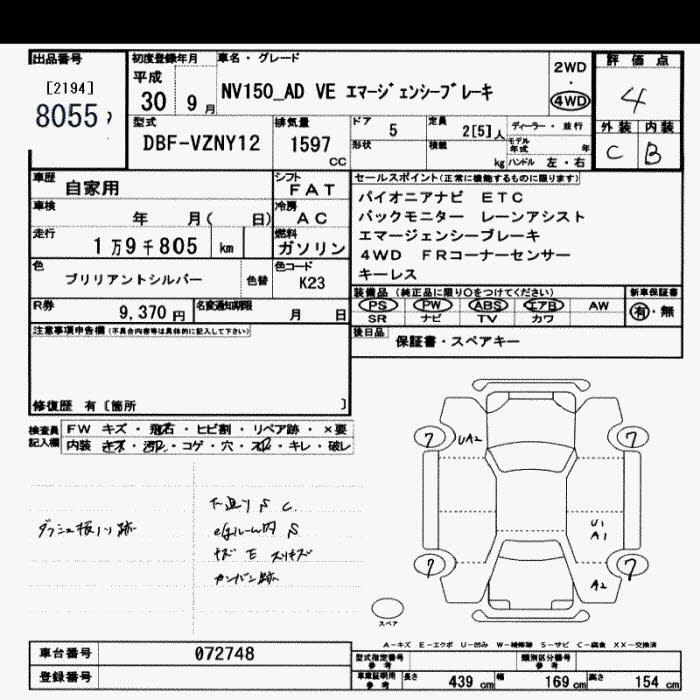 出品番号
[2194]
8055
初度登録年月
平成
30 9月
車名・グレード
NV150_AD VE エマージェンシーブレーキ
2WD
・
4WD
評価点
4
外装 内装
C B
型式
DBF-VZNY12
排気量
1597
CC
ドア 5
定員 2[5]人
形状
積載 kg
ディーラー・並行
モデル年式 年
ハンドル 左・右
車歴 自家用
シフト FAT
車検 年 月( 日)
冷房 AC
走行 1万9千805 km
燃料 ガソリン
色 ブリリアントシルバー
色替
色コード K23
R券 9,370円
名変通知期限 月 日
セールスポイント(正常に機能するものに限ります)
パイオニアナビ ETC
バックモニター レーンアシスト
エマージェンシーブレーキ
4WD FRコーナーセンサー
キーレス
装備品(純正品に限り○をつけてください)
PS PW ABS エアB AW
SR ナビ TV カワ
新車保証書
有・無
後日品 保証書・スペアキー
注意事項申告欄(不具合内容等は具体的に記入して下さい)
修復歴 有[箇所 ]
検査員記入欄
FW キズ・飛石・ヒビ割・リペア跡・×要
内装 キズ・汚レ・コゲ・穴・スレ・キレ・破レ
下廻りS C
ルーム内 S
キズ E スリキズ
カンバン跡
7 7
UA2
U1
A1
7 7
A2
スペア
A-キズ E-エクボ U-凹み W-補修跡 S-サビ C-腐食 XX-交換済
車台番号 072748
登録番号
型式指定番号 参考
類別区分番号 参考
車庫証明用 参考 長さ 439 cm 幅 169 cm 高さ 154 cm